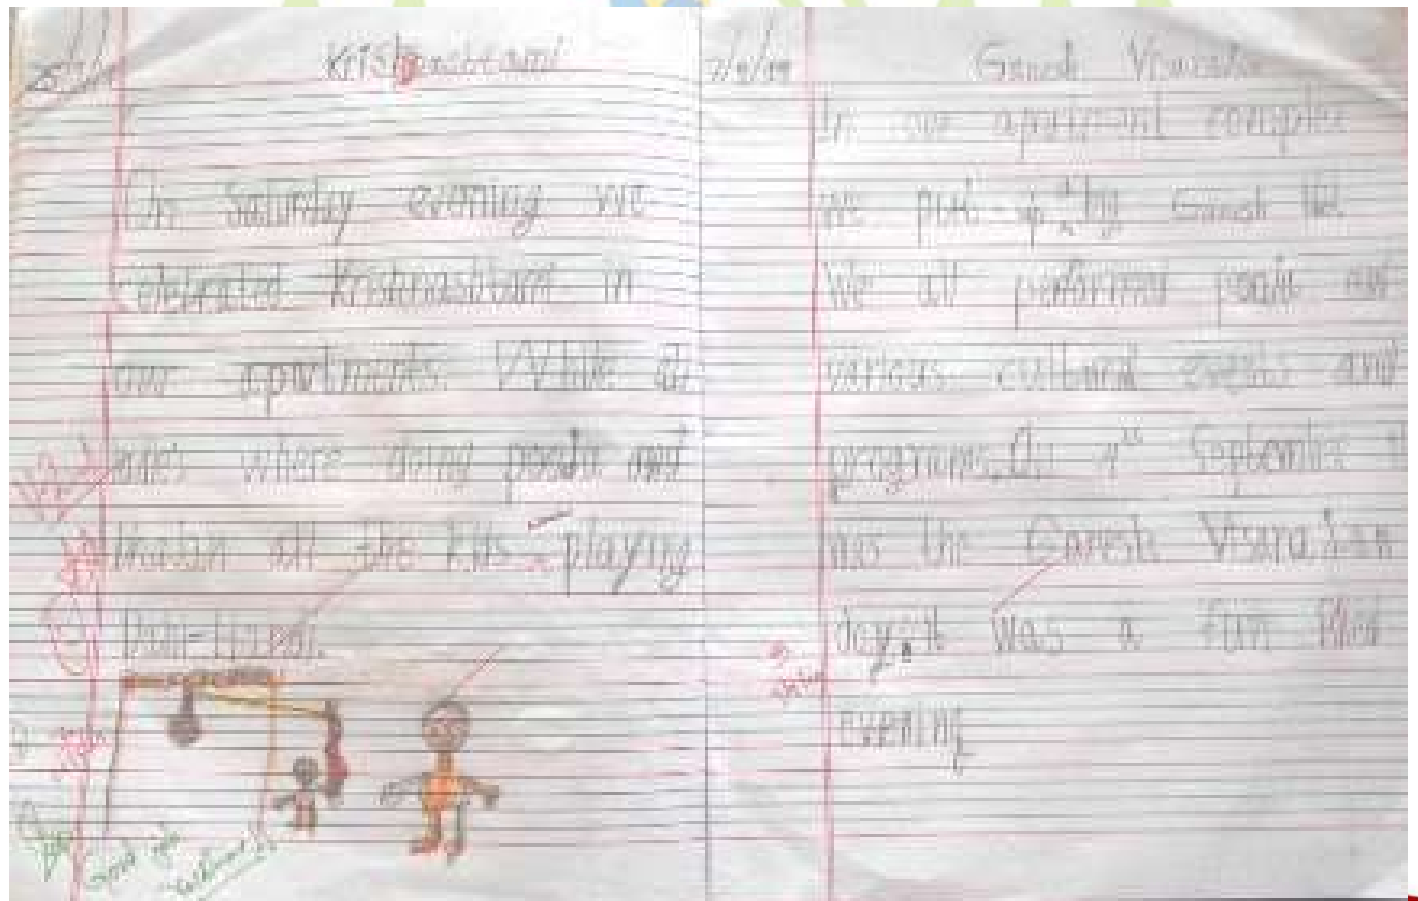 Krishnashtami
On Saturday evening we
celebrated Krishnashtami in
our apartments. While all
where doing pooja and
bhajan all the kids playing
Dahi-Handi.
Good job
7/9/19
Ganesh Visarjan
In our apartment complex
we put-up big Ganesh Idol
We all performed pooja and
various cultural events and
programs. On September it
was the Ganesh Visarjan
day. it was a fun filled
evening